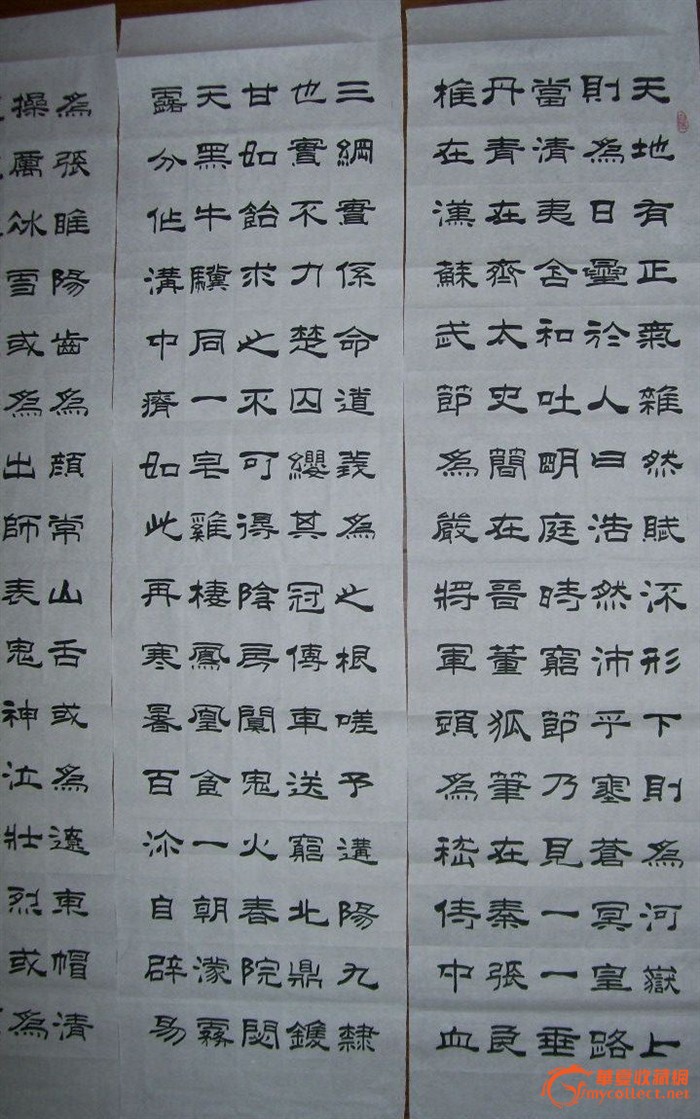 天地有正氣雜然賦流形下則為河嶽上
則為日曐於人曰浩然沛乎塞蒼冥皇路
當清夷含和吐明庭時窮節乃見一一垂
丹青在齊太史簡在晉董狐筆在秦張良
椎在漢蘇武節為嚴將軍頭為嵇侍中血
三綱實係命道義為之根嗟予遘陽九隸
也實不力楚囚纓其冠傳車送窮北鼎鑊
甘如飴求之不可得陰房闃鬼火春院閟
天黑牛驥同一皂雞棲鳳凰食一朝濛霧
露分作溝中瘠如此再寒暑百沴自辟易
為張睢陽齒為顏常山舌或為遼東帽清
操厲冰雪或為出師表鬼神泣壯烈或為
華夏收藏網
mycollect.net